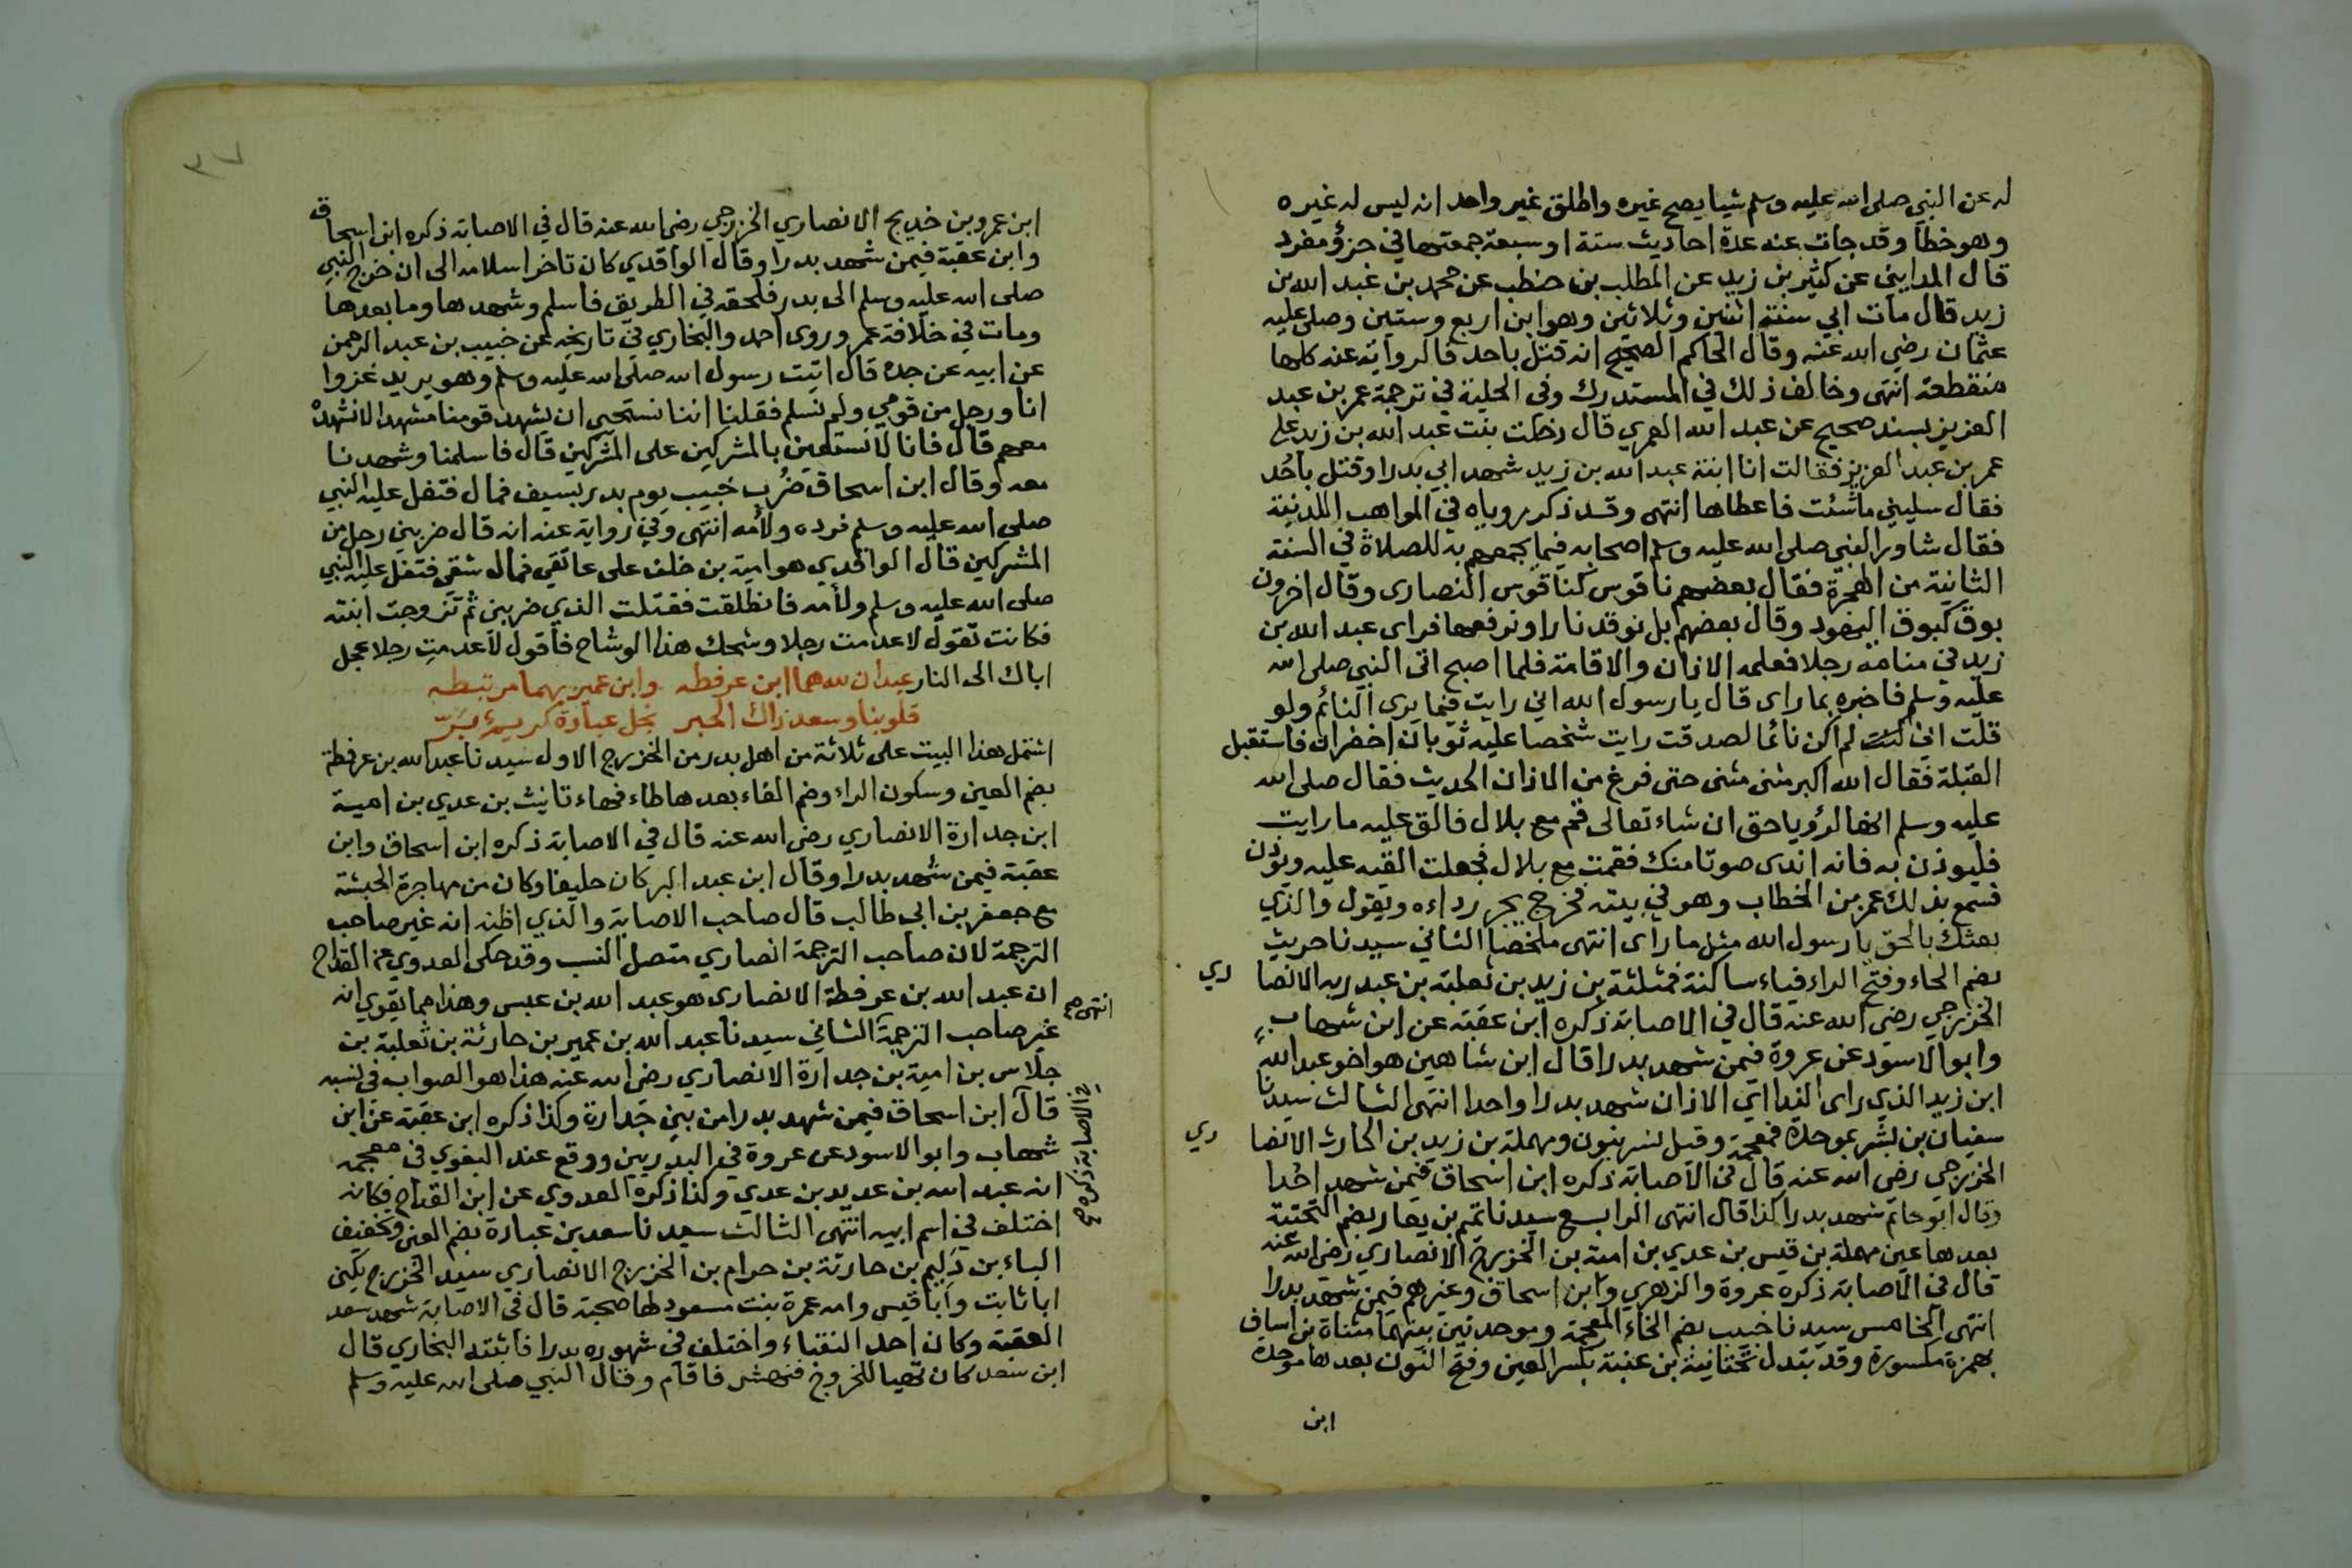 له عن النبي صلى الله عليه وسلم شيا يصح غيره واطلق غير واحد انه ليس له غيره
وهو خطأ وقد جات عنه عدة احاديث ستة او سبعة جمعتها في جزؤ مفرد
قال المدايني عن كثير بن زيد عن المطلب بن حنطب عن محمد بن عبد الله بن
زيد قال مات ابي سنة اثنين وثلاثين وهو ابن اربع وستين وصلى عليه
عثمان رضي الله عنه وقال الحاكم الصحيح انه قتل باحد فالرواية عنه كلها
منقطعة انتهى وخالف ذلك في المستدرك وفي الحلية في ترجمة عمر بن عبد
العزيز بسند صحيح عن عبد الله العمري قال دخلت بنت عبد الله بن زيد على
عمر بن عبد العزيز فقالت انا ابنة عبد الله بن زيد شهد ابي بدرا وقتل باحُد
فقال سليني ما شئت فاعطاها انتهى وقد ذكر روياه في المواهب اللدنية
فقال شاور النبي صلى الله عليه وسلم اصحابه فيما يجمعهم به للصلاة في السنة
الثانية من الهجرة فقال بعضهم ناقوس كناقوس النصارى وقال اخرون
بوق كبوق اليهود وقال بعضهم بل نوقد نارا ونرفعها فراى عبد الله بن
زيد في منامه رجلا فعلمه الاذان والاقامة فلما اصبح اتى النبي صلى الله
عليه وسلم فاخبره بما راى قال يا رسول الله اني رايت فيما يرى النائم ولو
قلت اني لم اكن نائما لصدقت رايت شخصا عليه ثوبان اخضران فاستقبل
القبلة فقال الله اكبر مثنى مثنى حتى فرغ من الاذان الحديث فقال صلى الله
عليه وسلم انها لرؤيا حق ان شاء تعالى قم مع بلال فالق عليه ما رايت
فليوذن به فانه اندى صوتا منك فقمت مع بلال فجعلت القيه عليه ويوذن
فسمع بذلك عمر بن الخطاب وهو في بيته فخرج يجر رداءه ويقول والذي
بعثك بالحق يا رسول الله مثل ما رأى انتهى ملخصا الثاني سيدنا حريث
بضم الحاء وفتح الراء فياء ساكنة فمثلثة بن زيد بن ثعلبة بن عبد ربه الانصاري
الخزرجي رضي الله عنه قال في الاصابة ذكره ابن عقبة عن ابن شهاب
وابو الاسود عن عروة فيمن شهد بدرا قال ابن شاهين هو اخو عبد الله
ابن زيد الذي راى النداا ي الاذان شهد بدرا واحدا انتهى الثالث سيدنا
سفيان بن بشر بموحدة فمعجمة وقيل نسر بنون ومهملة بن زيد بن الحارث الانصاري
الخزرجي رضي الله عنه قال في الاصابة ذكره ابن اسحاق فيمن شهد احُدا
وقال ابو حاتم شهد بدرا كذا قال انتهى الرابع سيدنا تميم بن يعار بضم التحتية
بعدها عين مهملة بن قيس بن عدي بن امية بن الخزرج الانصاري رضي الله عنه
قال في الاصابة ذكره عروة والزهري وابن اسحاق وغيرهم فيمن شهد بدرا
انتهى الخامس سيدنا خبيب بضم الخاء المعجمة وموحدتين بينهما مثناة بن اساف
بهمزة مكسورة وقد تبدل تحتانية بن عنبة بكسر العين وفتح النون بعدها موحدة
ابن
٣٧
ابن عمرو بن خديج الانصاري الخزرجي رضي الله عنه قال في الاصابة ذكره ابن اسحاق
وابن عقبة فيمن شهد بدرا وقال الواقدي كان تاخر اسلامه الى ان خرج النبي
صلى الله عليه وسلم الى بدر فلحقه في الطريق فاسلم وشهدها وما بعدها
ومات في خلافة عمر وروى احمد والبخاري في تاريخه عن خبيب بن عبد الرحمن
عن ابيه عن جده قال اتيت رسول الله صلى الله عليه وسلم وهو يريد غزوا
انا ورجل من قومي ولم نسلم فقلنا اننا نستحيي ان يشهد قومنا مشهدا لا نشهده
معهم قال فانا لا نستعين بالمشركين على المشركين قال فاسلمنا وشهدنا
معه وقال ابن اسحاق ضُرب خبيب يوم بدر بسيف فمال فتفل عليه النبي
صلى الله عليه وسلم فرده ولأمه انتهى وفي رواية عنه انه قال ضربني رجل من
المشركين قال الواقدي هو امية بن خلف على عاتقي فمال شقي فتفل عليه النبي
صلى الله عليه وسلم ولأمه فانطلقت فقتلت الذي ضربني ثم تزوجت ابنته
فكانت تقول لا عدمت رجلا وشحك هذا الوشاح فاقول لا عدمتِ رجلا عجل
اباك الى النار عبدان لله هما ابن عرفطه وابن عمير بهما مرتبطه
قلوبنا وسعد ذاك الحبر نجل عبادة كريم برّ
اشتمل هذا البيت على ثلاثة من اهل بدر من الخزرج الاول سيدنا عبد الله بن عرفطة
بضم العين وسكون الراء وضم الفاء بعدها طاء فهاء تانيث بن عدي بن امية
ابن جدارة الانصاري رضي الله عنه قال في الاصابة ذكره ابن اسحاق وابن
عقبة فيمن شهد بدرا وقال ابن عبد البر كان حليفا وكان من مهاجرة الحبشة
مع جعفر بن ابي طالب قال صاحب الاصابة والذي اظنه انه غير صاحب
الترجمة لان صاحب الترجمة انصاري متصل النسب وقد حكى العدوي عن القداح
ان عبد الله بن عرفطة الانصاري هو عبد الله بن عبس وهذا مما يقوي انه
انتهى صح
غير صاحب الترجمة الثاني سيدنا عبد الله بن عمير بن حارثة بن ثعلبة بن
جلاس بن امية بن جدارة الانصاري رضي الله عنه هذا هو الصواب في نسبه
قال ابن اسحاق فيمن شهد بدرا من بني جدارة وكذا ذكره ابن عقبة عن ابن
في الاصابة ذكره صح
شهاب وابو الاسود عن عروة في البدريين ووقع عند البغوي في معجمه
انه عبد الله بن عديد بن عدي وكذا ذكره العدوي عن ابن القداح فكانه
اختلف في اسم ابيه انتهى الثالث سيدنا سعد بن عبادة بضم العين وتخفيف
الباء بن دُلَيم بن حارثة بن حرام بن الخزرج الانصاري سيد الخزرج يكنى
ابا ثابت وابا قيس وامه عمرة بنت مسعود لها صحبة قال في الاصابة شهد سعد
العقبة وكان احد النقباء واختلف في شهوده بدرا فاثبته البخاري قال
ابن سعد كان تهيا للخروج فنهش فاقام وقال النبي صلى الله عليه وسلم